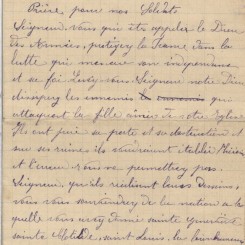 Prière pour nos Soldats
Seigneur, vous qui êtes appelé le Dieu
des Armées, protégez la France dans la
lutte qui menace son indépendance
et sa foi. Levez vous Seigneur notre Dieu
dissipez les ennemis qui
attaquent la fille aînée de votre Église
Ils ont juré sa perte et sa destruction et
sur ses ruines ils voudraient établir
et l'erreur vous ne permettrez pas
Seigneur, qu'ils réalisent leurs Desseins,
vous vous souviendrez de la nation à la
quelle vous avez donné sainte Geneviève
sainte Clotilde, saint Louis, la bienheureuse